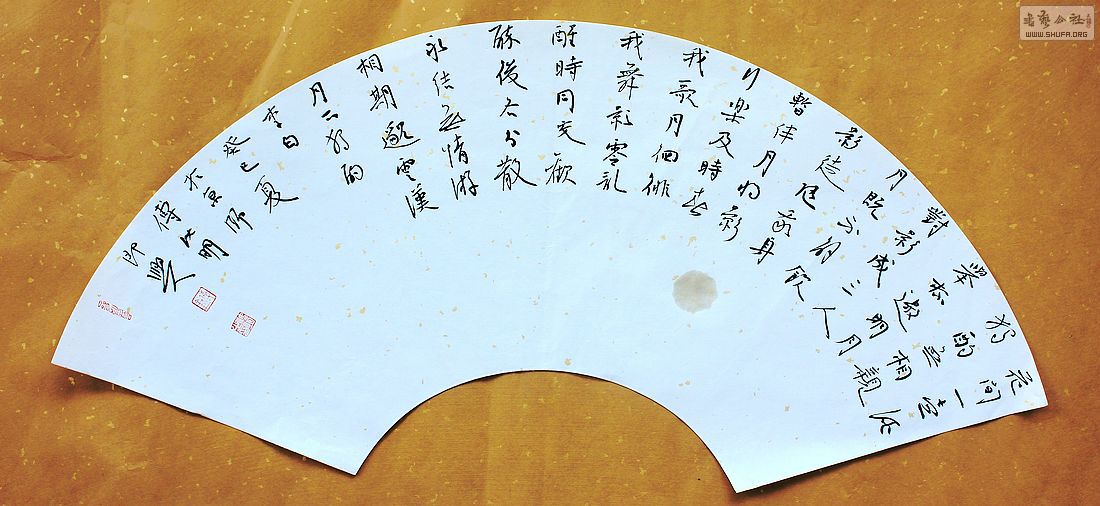 花間一壺酒
獨酌無相親
舉杯邀明月
對影成三人
月既不解飲
影徒隨我身
暫伴月將影
行樂及時春
我歌月徊徘
我舞影零乱
醒時同交歡
醉後各分散
永结無情游
相期邈雲漢
月下獨酌
李白
癸巳夏
京師
傅明
WWW.SHUFA.ORG